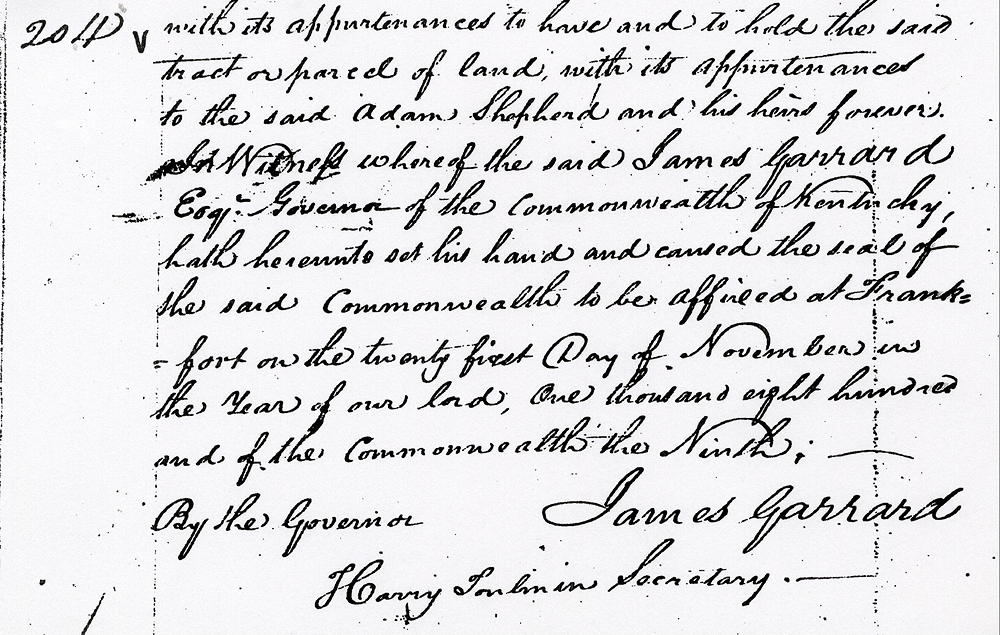 204 v with its appurtenances to have and to hold the said
tract or parcel of land, with its appurtenances
to the said Adam Shepherd and his heirs forever.
In Witness whereof the said James Garrard
Esqr. Governor of the Commonwealth of Kentucky,
hath hereunto set his hand and caused the seal of
the said Commonwealth to be affixed at Frank=
=fort on the twenty first Day of November in
the Year of our lord, One thousand eight hundred
and of the Commonwealth the Ninth;
By the Governor James Garrard
Harry Toulmin Secretary.